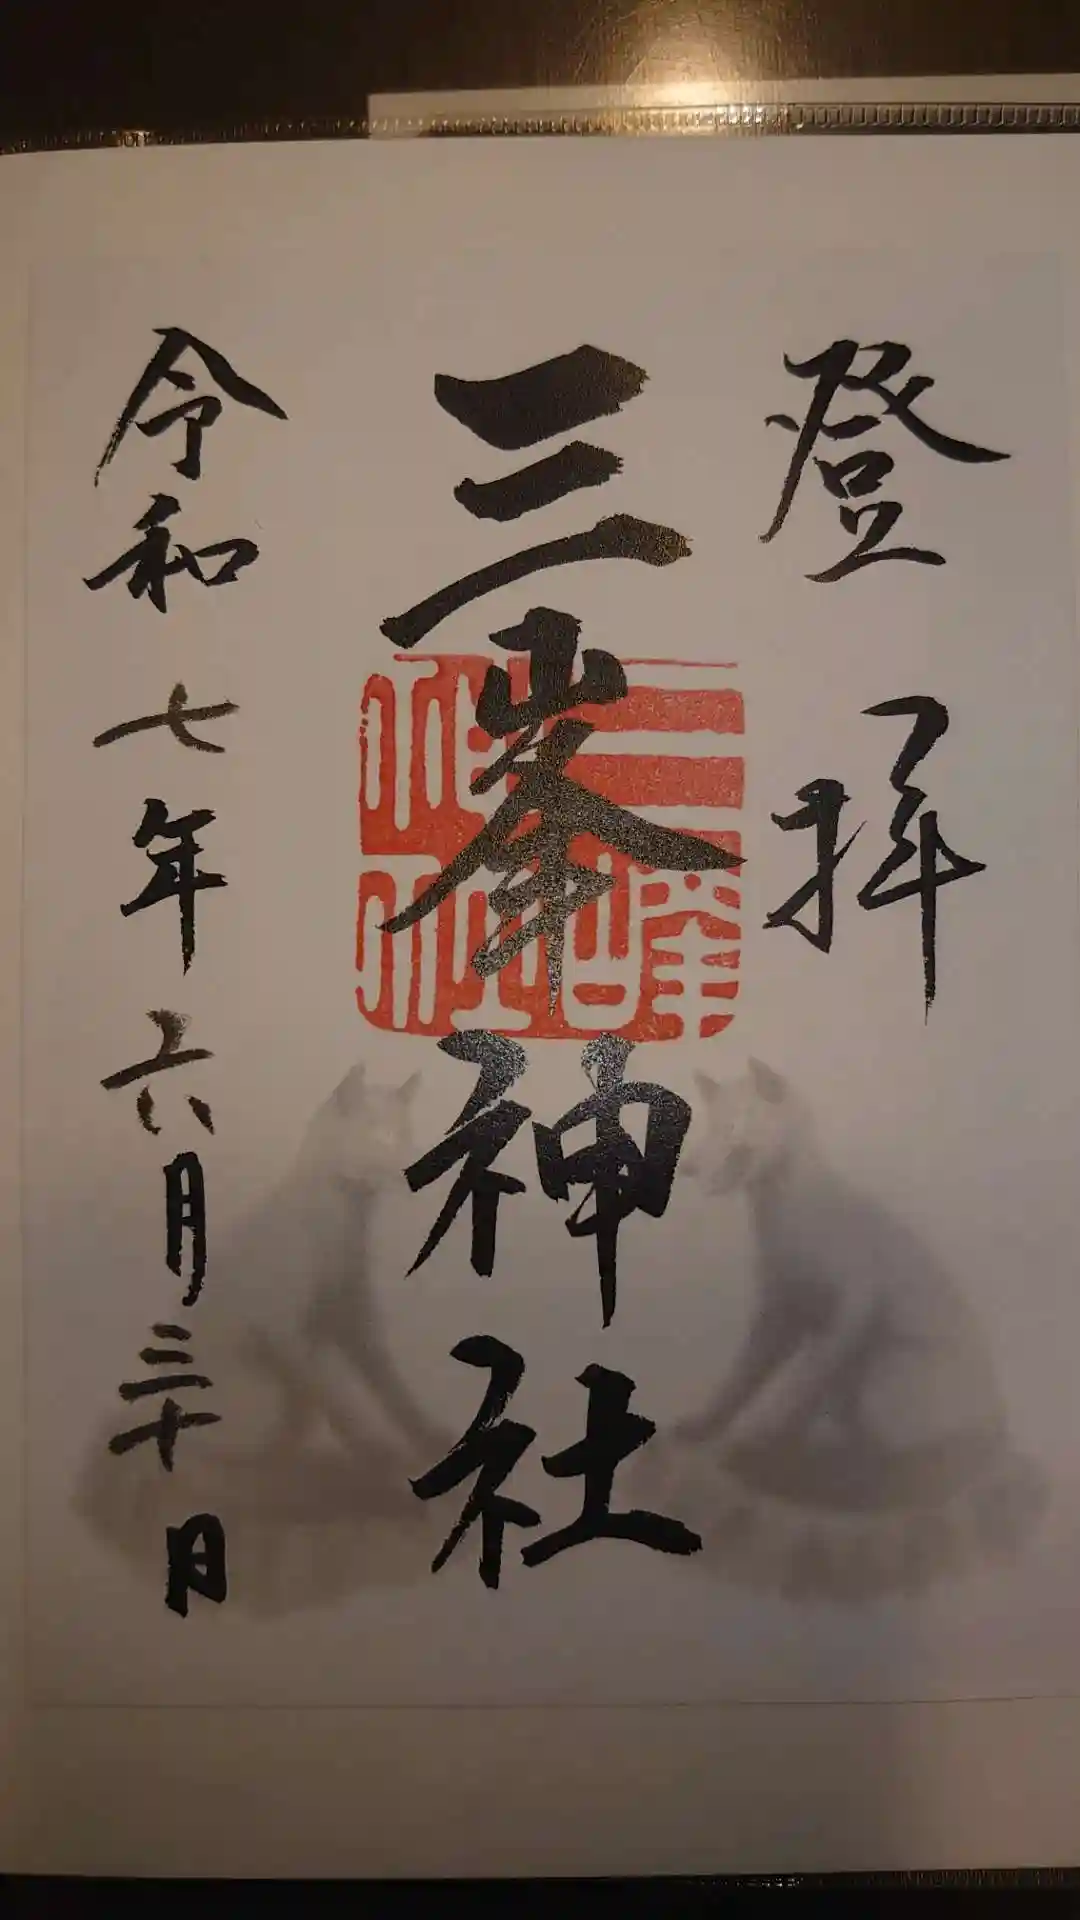 登拝
三峯神社
三峰神社
令和七年六月三十日